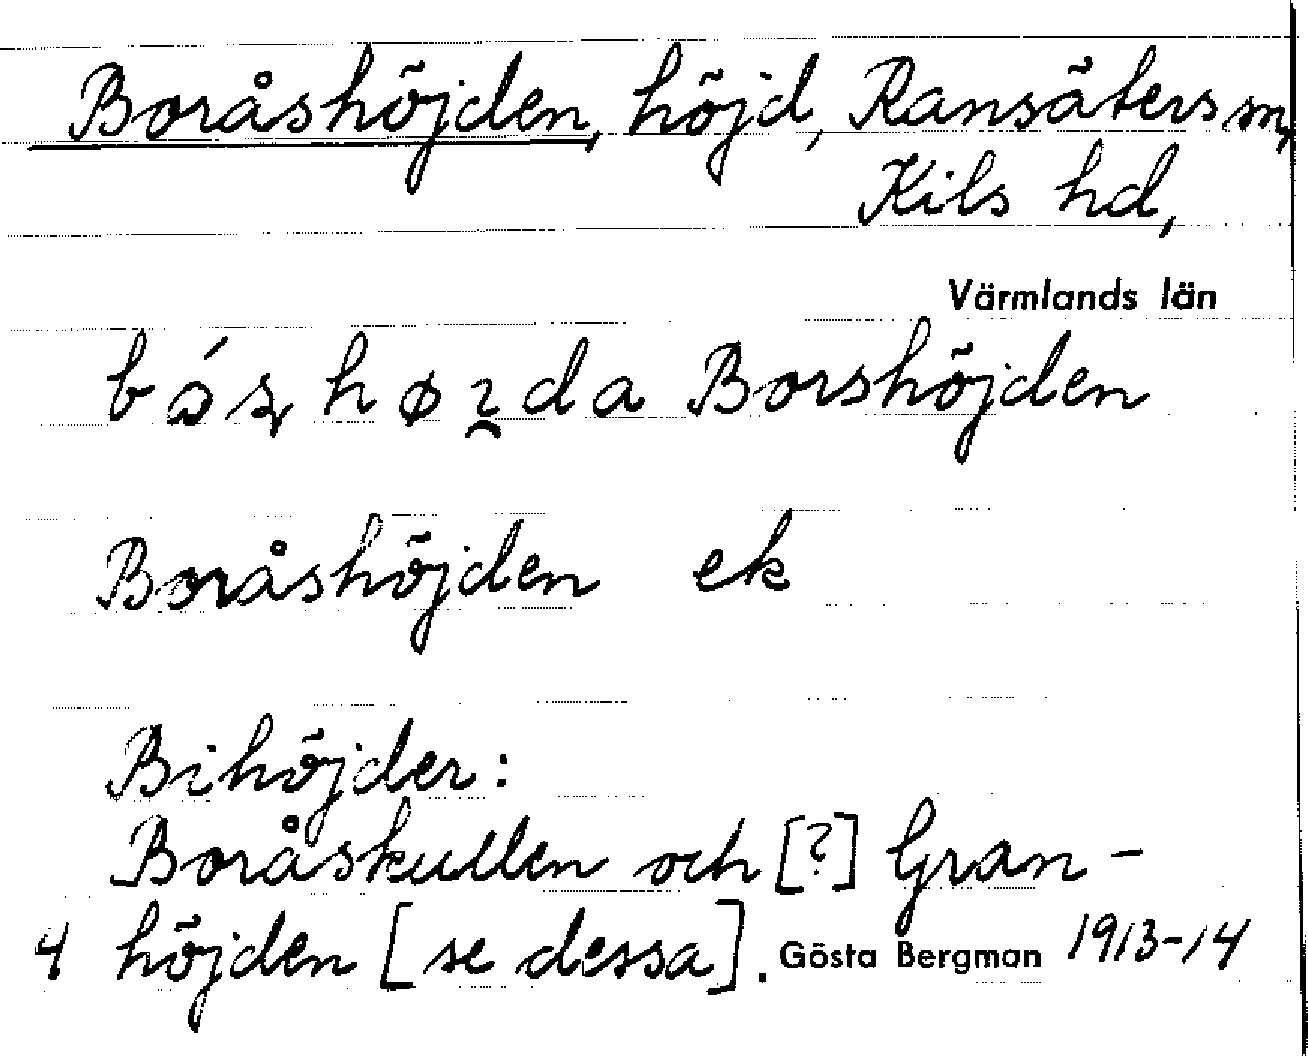 Boråshöjden, höjd, Ransäters sn,
Kils hd,
Värmlands län
Borshöjden
Boråshöjden ek
Bihöjder:
Boråskullen och [?] Gran-
4 höjden [se dessa]. Gösta Bergman 1913-14